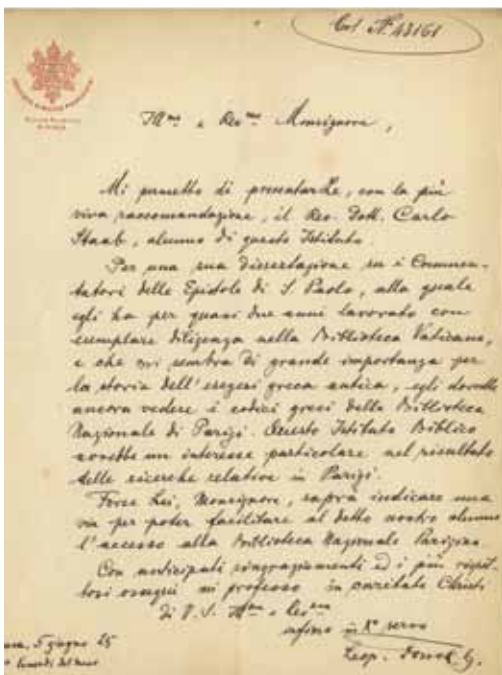 Col N° 43161
Ill.mo e Rev.mo Monsignore,
Mi permetto di presentarLe, con la più
viva raccomandazione, il Rev. Dott. Carlo
Staab, alunno di questo Istituto.
Per una sua dissertazione su i Commen-
tatori delle Epistole di S. Paolo, alla quale
egli ha per quasi due anni lavorato con
esemplare diligenza nella Biblioteca Vaticana,
e che mi sembra di grande importanza per
la storia dell'esegesi greca antica, egli dovrebbe
ancora vedere i codici greci della Biblioteca
Nazionale di Parigi. Questo Istituto Biblico
avrebbe un interesse particolare nel risultato
delle ricerche relative in Parigi.
Forse Lei, Monsignore, saprà indicare una
via per poter facilitare al detto nostro alunno
l'accesso alla Biblioteca Nazionale Parigina.
Con anticipati ringraziamenti ed i più rispet-
tosi ossequi mi professo in caritate Christi
di V. S. Ill.ma e Rev.ma
infimo in X° servo
Leop. Fonck
5 giugno 25